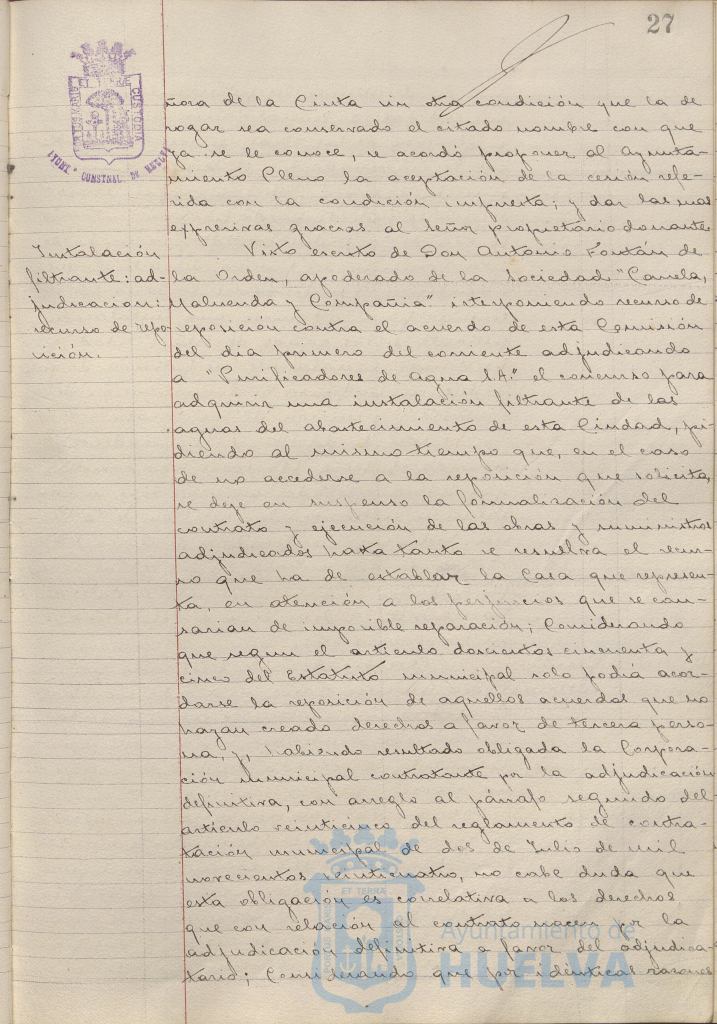 27
PORTUS MARIS ET TERRE CUSTODIA
AYUNT. CONSTNAL. DE HUELVA
ñora de la Cinta sin otra condición que la de
rogar sea conservado el citado nombre con que
ya se le conoce, se acordó proponer al Ayunta-
miento Pleno la aceptación de la cesión refe-
rida con la condición impuesta; y dar las mas
expresivas gracias al Señor propietario donante.
Instalación
filtrante: ad-
judicacion:
recurso de repo-
sición.
Visto escrito de Don Antonio Fontán de
la Orden, apoderado de la Sociedad "Canela,
Maluenda y Compañia" interponiendo recurso de
reposición contra el acuerdo de esta Comisión
del dia primero del corriente adjudicando
a "Purificadores de Agua S.A." el concurso para
adquirir una instalación filtrante de las
aguas del abastecimiento de esta Ciudad, pi-
diendo al mismo tiempo que, en el caso
de no accederse a la reposición que solicita,
se deje en suspenso la formalización del
contrato y ejecución de las obras y suministros
adjudicados hasta tanto se resuelva el recur-
so que ha de establar la Casa que represen-
ta, en atención a los perjuicios que se cau-
sarian de imposible reparación; Considerando
que segun el articulo doscientos cincuenta y
cinco del Estatuto municipal solo podia acor-
darse la reposición de aquellos acuerdos que no
hayan creado derechos a favor de tercera perso-
na, y, habiendo resultado obligada la Corpora-
ción municipal contratante por la adjudicación
definitiva, con arreglo al párrafo segundo del
articulo veinticinco del reglamento de contra-
tación municipal de dos de Julio de mil
novecientos veinticuatro, no cabe duda que
esta obligación es correlativa a los derechos
que con relación al contrato nacen por la
adjudicacion definitiva a favor del adjudica-
tario; Considerando que por identicas razones
Ayuntamiento de
HUELVA